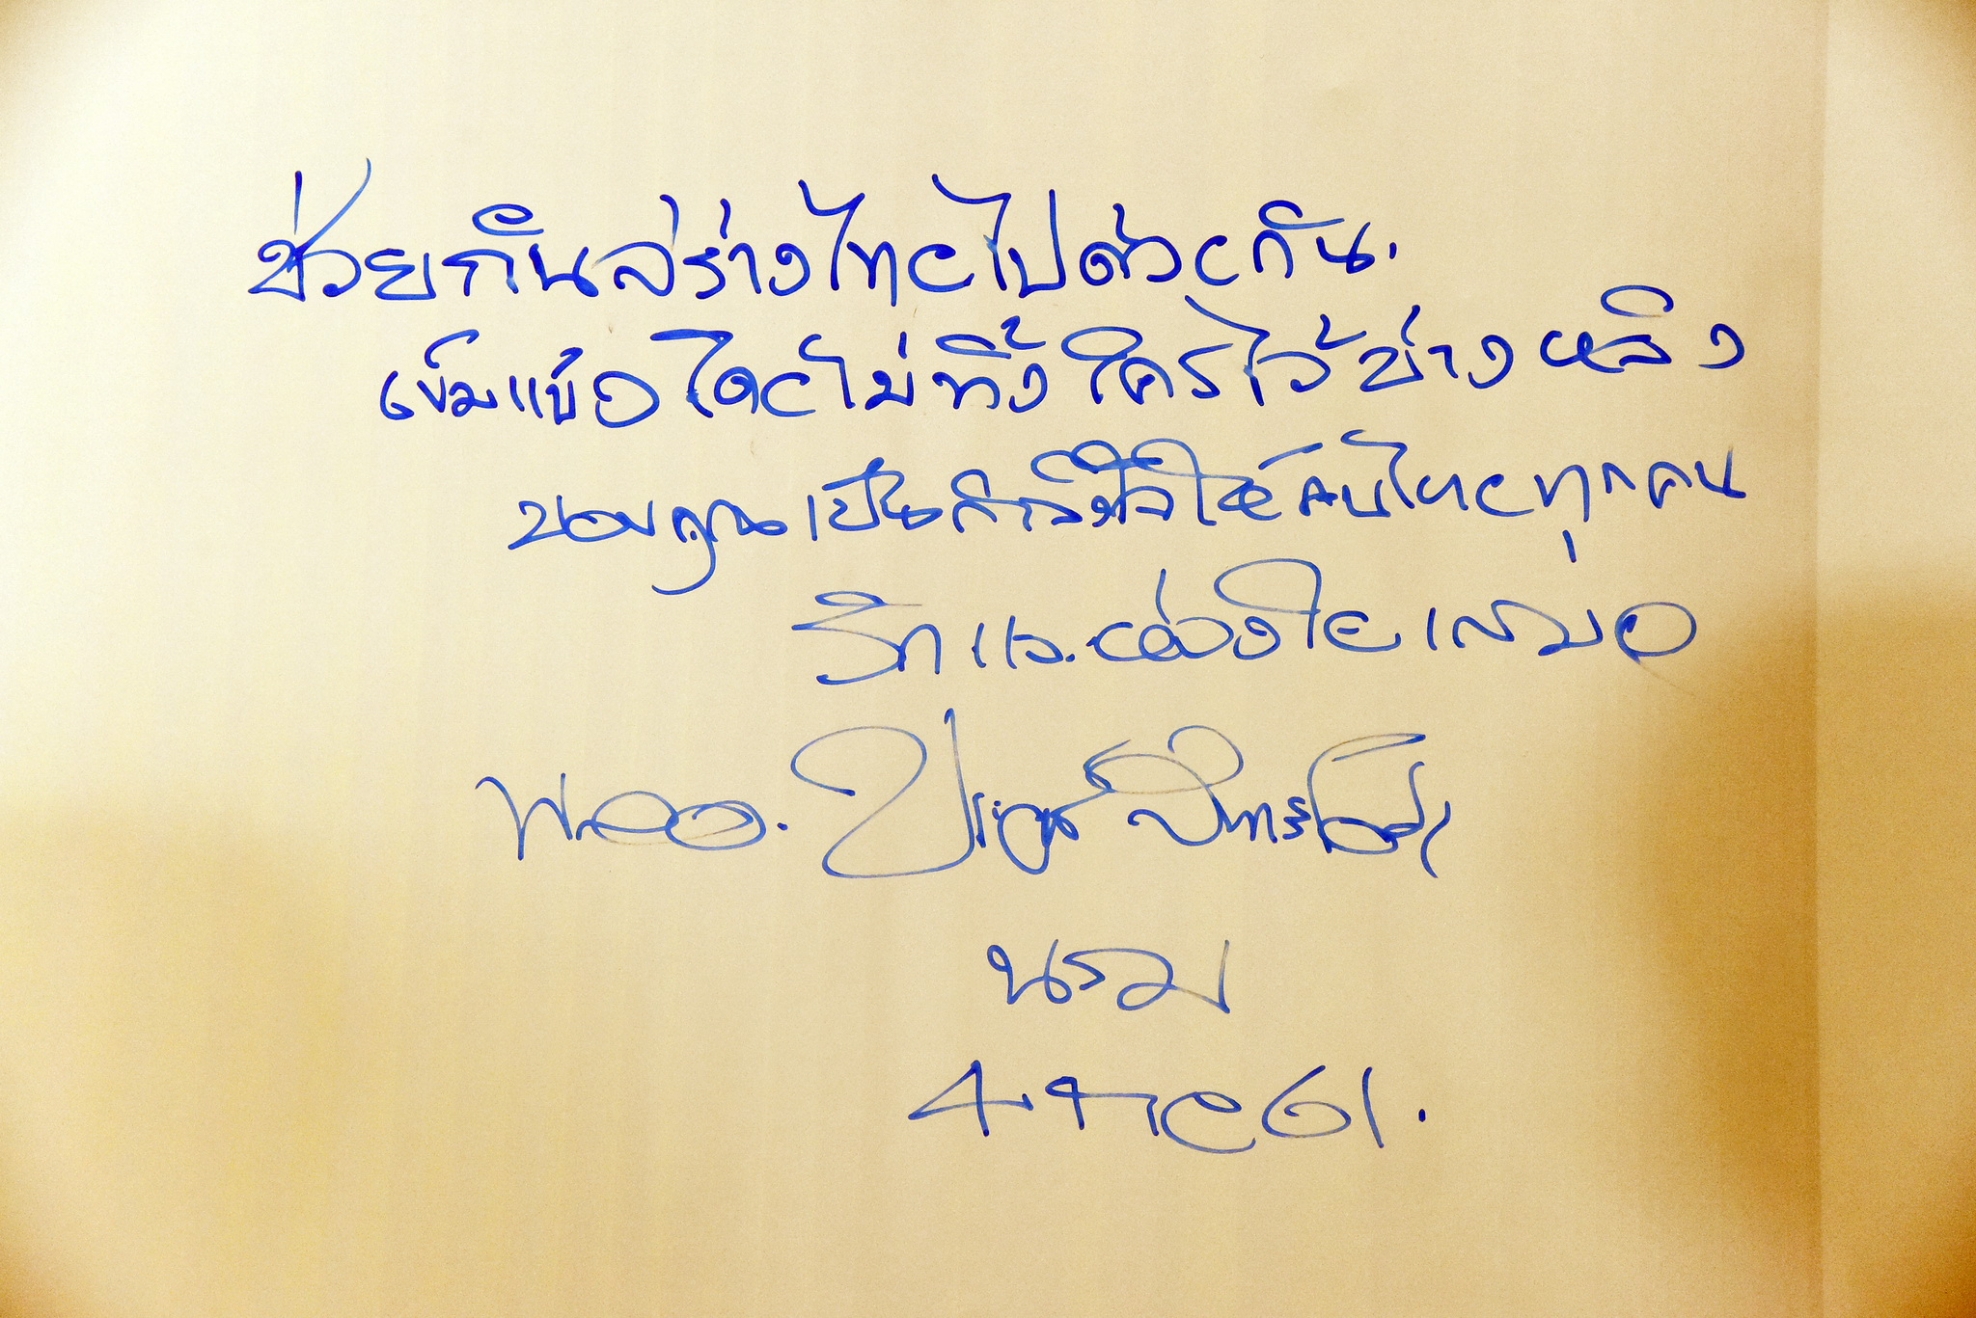 ช่วยกันสร้างไทยไปด้วยกัน.
เข้มแข็ง โดยไม่ทิ้งใครไว้ข้างหลัง
ขอบคุณ เป็นกำลังใจให้คนไทยทุกคน
รักและห่วงใยเสมอ
พล.อ. ประยุทธ์ จันทร์โอชา
นรม
4 61.